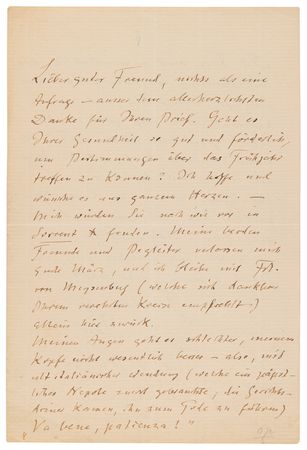 Lieber guter Freund, nichts als eine
Anfrage – ausser dem allerherzlichsten
Danke für Ihren Brief. Geht es
Ihrer Gesundheit so gut und förderlich,
um Bestimmungen über das Frühjahr
treffen zu können? Ich hoffe und
wünsche es aus ganzem Herzen. –
Mich würden Sie nach wie vor in
Sorrent finden. Meine beiden
Freunde und Begleiter verlassen mich
Ende März, und ich bleibe mit Frl.
von Meysenbug (welche sich dankbar
Ihrem verehrten Kreise empfiehlt)
allein hier zurück.
Meinen Augen geht es schlechter, meinem
Kopfe nicht wesentlich besser – also, mit
alt italiänischer Wendung (welche ein päpst-
licher Nepote zuerst gebrauchte, als
kamen, ihn zum Tode zu führen)
Va bene, patienza!"